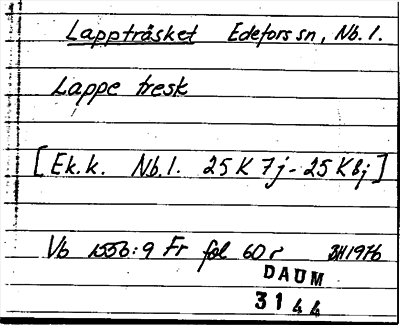 Lappträsket Edefors sn, Nb. l.
Lappe tresk
[Ek.k. Nb.l. 25 K 7j - 25 K 8j]
Vb 1556:9 Fr fol 60 r BH 1976
DAUM
3144